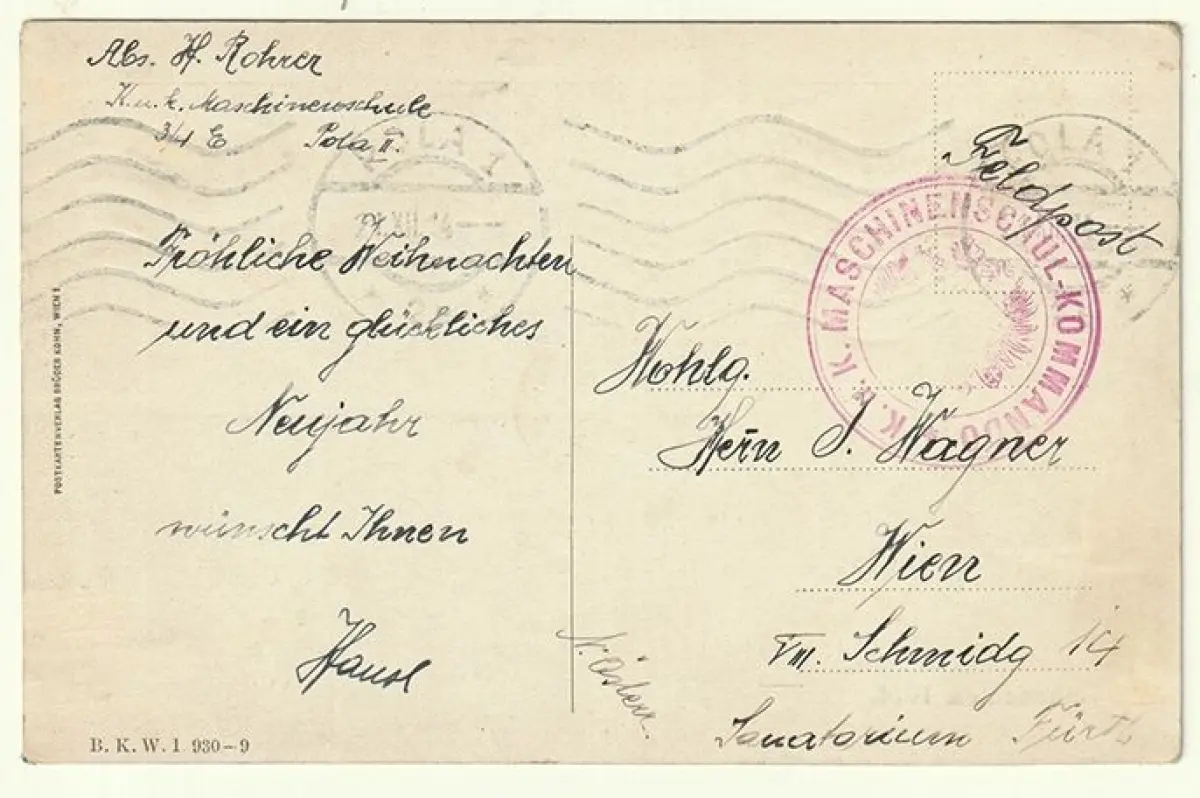 Abs. H. Rohrer
K.u.k. Maschinenschule
3/4 E Pola II.
Feldpost
POLA 1
POLA 1
K. u. K. MASCHINENSCHUL-KOMMANDO
Fröhliche Weihnachten
und ein glückliches
Neujahr
wünscht Ihnen
Hansl
Wohlg.
Herrn J. Wagner
Wien
VIII. Schmidg 14
Sanatorium Fürth
N. Österr.
POSTKARTENVERLAG BRÜDER KOHN, WIEN I
B. K. W. I 930-9